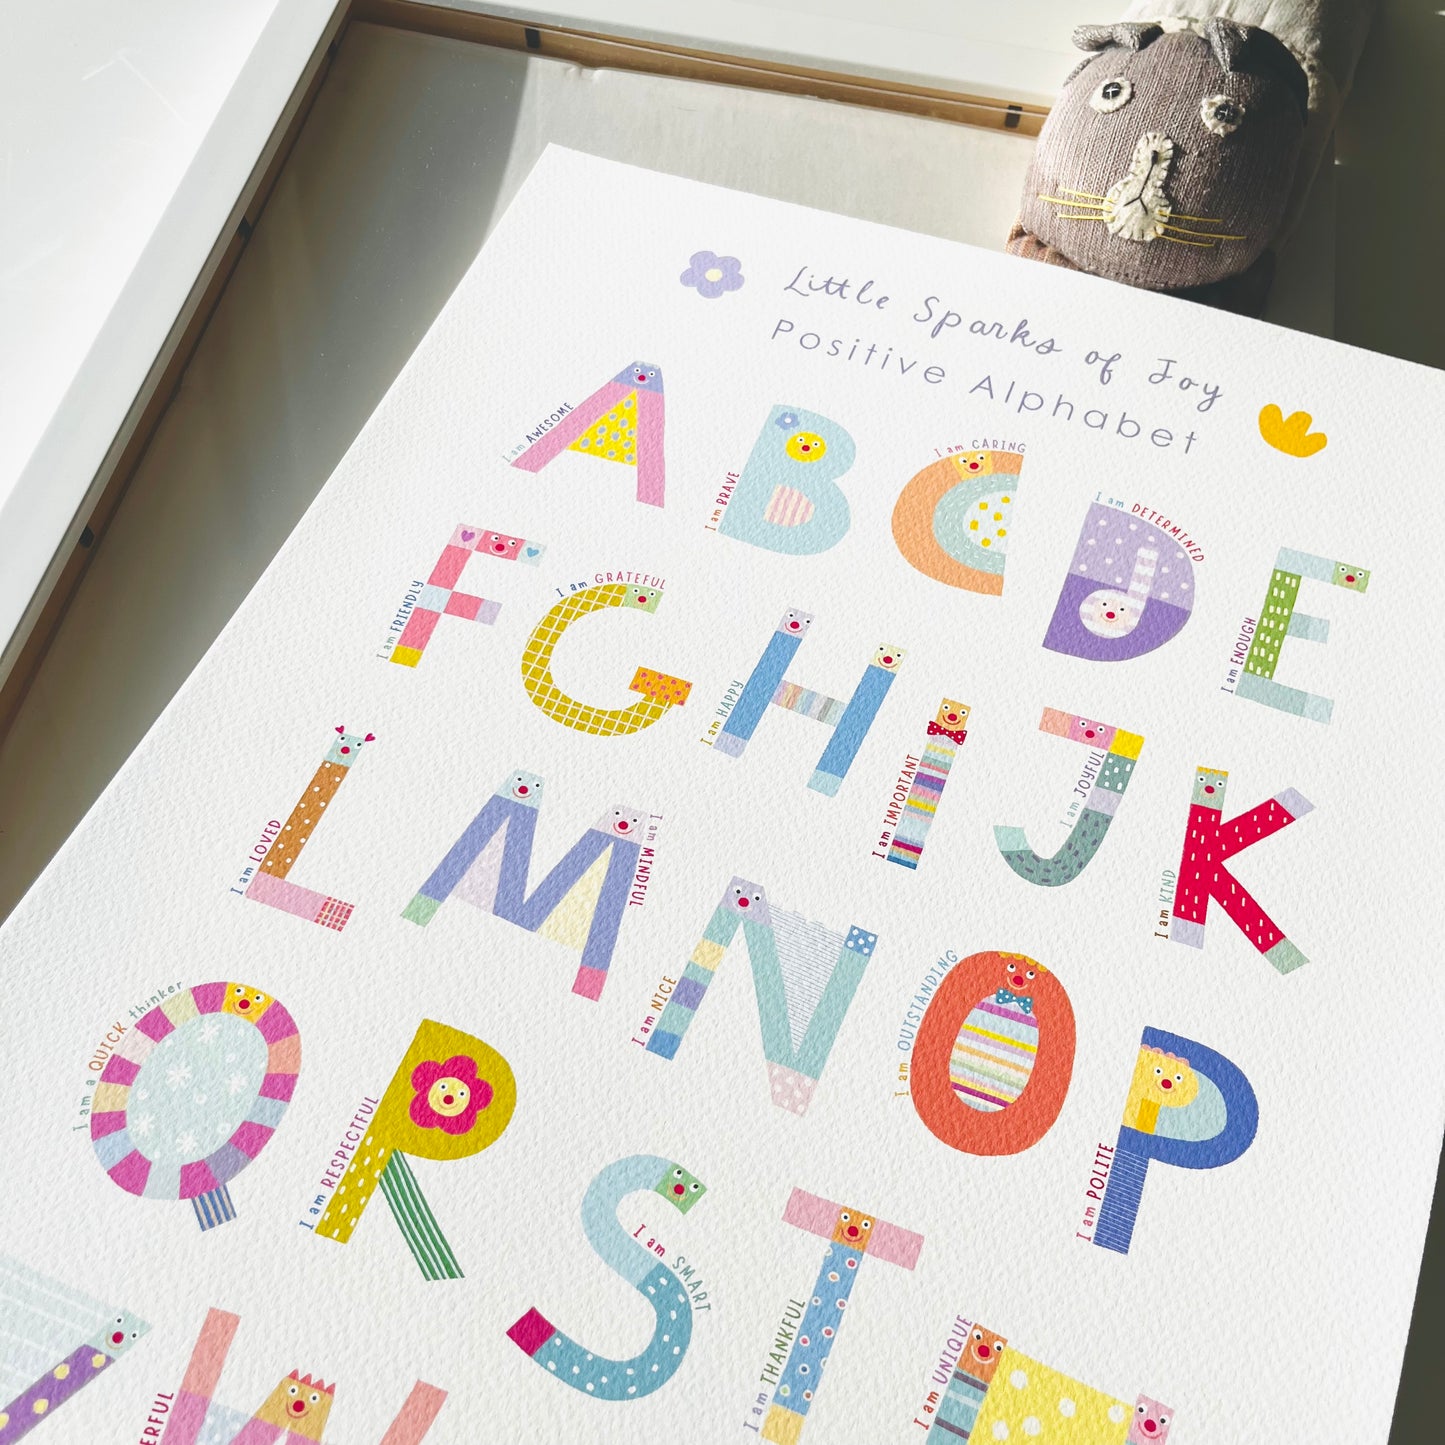 Little Sparks of Joy
Positive Alphabet
I am AWESOME
I am BRAVE
I am CARING
I am DETERMINED
I am ENOUGH
I am FRIENDLY
I am GRATEFUL
I am HAPPY
I am IMPORTANT
I am JOYFUL
I am KIND
I am LOVED
I am MINDFUL
I am NICE
I am OUTSTANDING
I am POLITE
I am a QUICK thinker
I am RESPECTFUL
I am SMART
I am THANKFUL
I am UNIQUE
ERFUL
A B C D E
F G H I J K
L M N O P
Q R S T U
V W